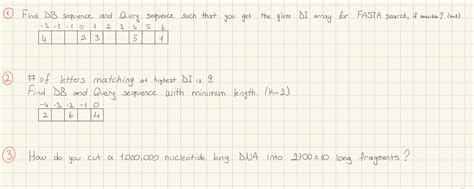 ① Find DB sequence and Query sequence such that you get the given DI array for FASTA search, if possible? (k=2)
-4 -3 -2 -1 0 1 2 3 4 5 6
4 2 3 5 1
② # of letters matching at highest DI is 9.
Find DB and Query sequence with minimum length. (k=2)
-4 -3 -2 -1 0
2 6 4
③ How do you cut a 1.000,000 nucleotide long DNA into 2700±10 long fragments?